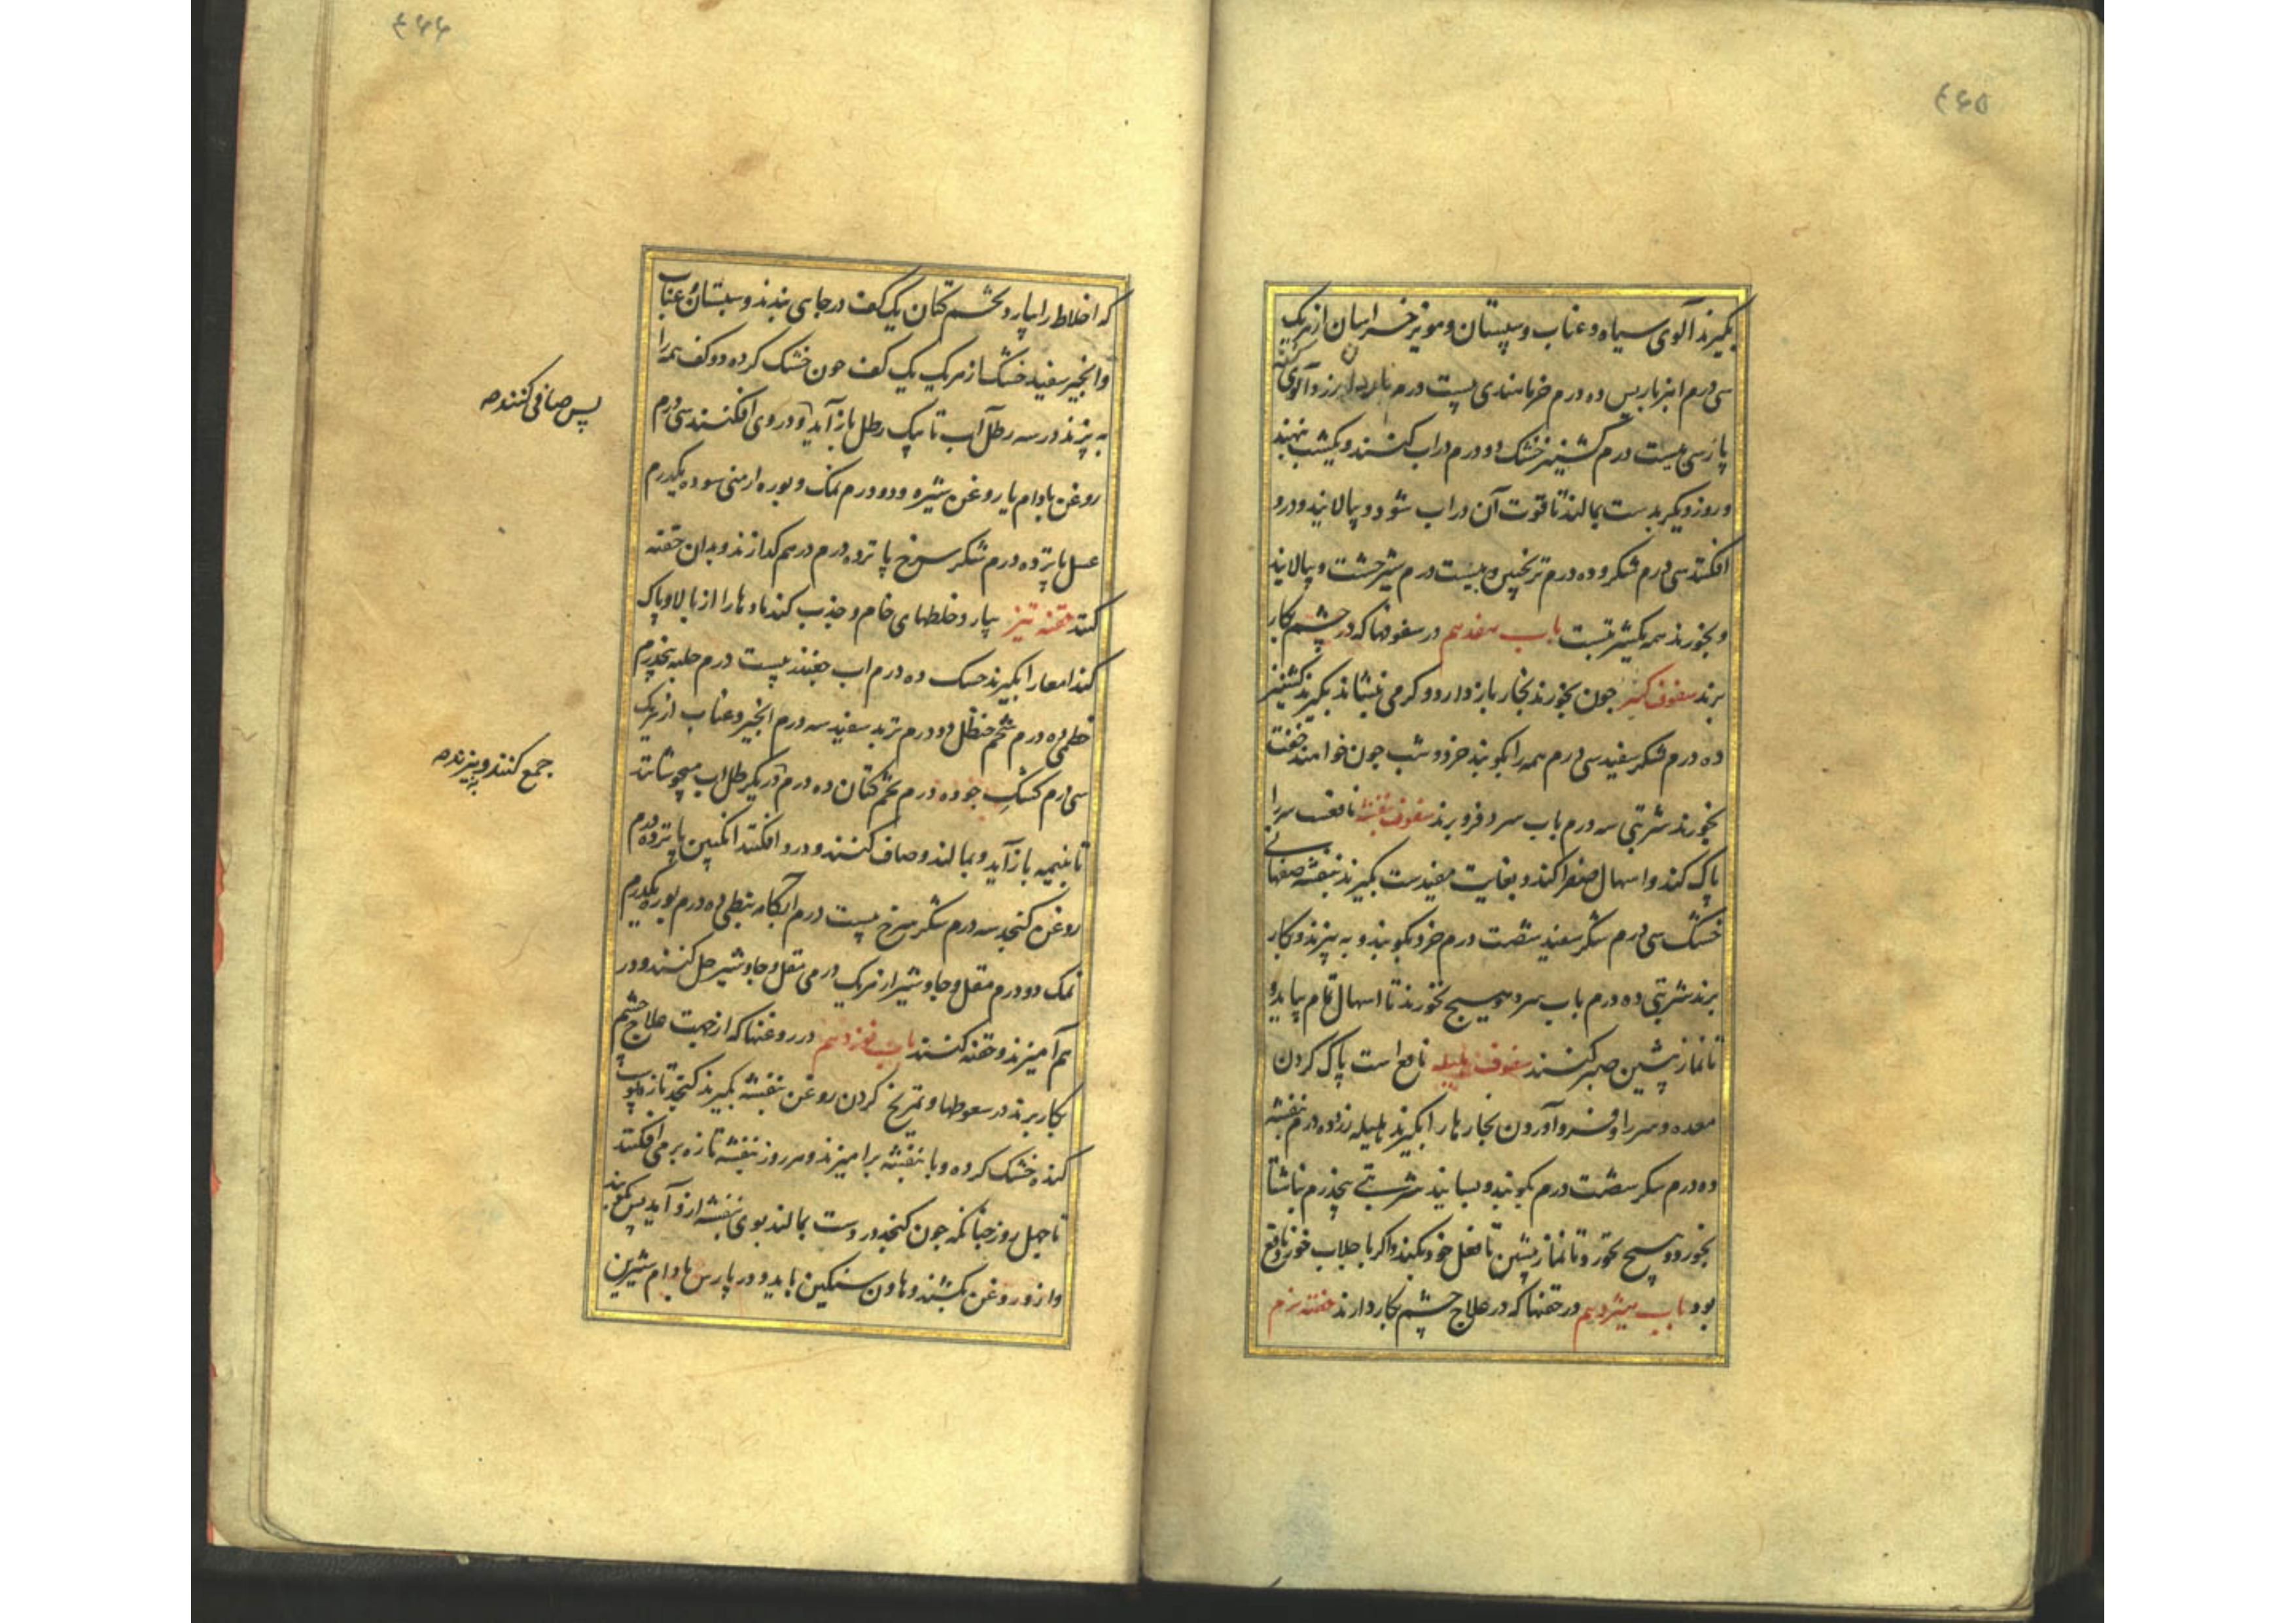 ۴۶۵
بکیرند آلوی سیاه و عناب و سپستان و مویز خراسان از هریک
سی درم انبرباریس ده درم خرماهندی بیست درم و آلوی
پارسی بیست درم کشنیز خشک دو درم در اب کنند و یکشب بنهند
و روز دیکر بدست بمالند تا قوت آن در اب شود و بپالایند و درو
افکنند سی درم شکر و ده درم ترنجبین و بیست درم شیرخشت و بپالایند
و بخورند همه یکشربتست باب هفدهم در سفوفها که در چشم بکار
برند سفوف کشنیز جون بخورند بخار باز دارد و کرمی بنشاند بکیرند کشنیز
ده درم شکر سفید سی درم همه را بکوبند خرد و شب جون خواهند خفت
بخورند شربتی سه درم باب سرد فرو برند سفوف بنفشه نافعست سر را
پاک کند و اسهال صفرا کند و بغایت مفیدست بکیرند بنفشه صفهانی
خشک سی درم شکر سفید شصت درم خرد بکوبند و به بیزند و بکار
برند شربتی ده درم باب سرد و هیچ نخورند تا اسهال تمام بیاید و
تا نماز پیشین صبر کنند سفوف هلیله نافع است پاک کردن
معده و سر را و فرو آوردن بخارها را بکیرند هلیله زرد ده درم بنفشه
ده درم شکر شصت درم بکوبند و بسایند شربتی پنجدرم ناشتا
بخورد و هیچ نخورد تا نماز پیشین تا فعل خود بکند و اکر با جلاب خورد نافع
بود باب هیژدهم در حقنها که در علاج چشم بکار دارند حقنه نرم
۴۶۶
که اخلاط را بیارد تخم کتان یک کف در جای بندند و سپستان و عناب
و انجیر سفید خشک از هریک یک کف جون خشک کرده دو کف همه را
به پزند در سه رطل آب تا بیک رطل باز آید و در وی افکنند سی درم
پس صافی کنند صه
روغن بادام یا روغن شیره و دو درم نمک و بوره ارمنی سوده یکدرم
عسل پانزده درم شکر سرخ پانزده درم درهم کدازند و بدان حقنه
کنند حقنه تیز بیارد خلطهای خام و جذب کند مادها را از بالا و پاک
کند امعا را بکیرند حسک ده درم اب جغندر بیست درم حلبه پنجدرم
خطمی ده درم شحم حنظل دو درم تربد سفید سه درم انجیر و عناب از هریک
سی درم کشک جو ده درم تخم کتان ده درم در یکرطل اب بجوشانند
جمع کنند و به پزند صه
تا بنیمه باز آید و بمالند و صاف کنند و درو افکنند انکبین پانزده درم
روغن کنجد سه درم شکر سرخ بیست درم آبکامه نبطی ده درم بوره یکدرم
نمک دو درم مقل و جاوشیر از هریک درمی مقل و جاوشیر حل کنند و در
هم آمیزند و حقنه کنند باب نوزدهم در روغنها که از جهت علاج چشم
بکار برند در سعوطها و تمریخ کردن روغن بنفشه بکیرند کنجد تازه پوست
کنده خشک کرده و با بنفشه برامیزند و هر روز بنفشه تازه بر می افکنند
تا چهل روز جنانکه جون کنجد در دست بمالند بوی بنفشه ازو آید پس بکوبند
و ازو روغن بکشند و هاون سنکین باید و در پارس بادام شیرین